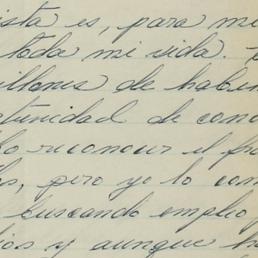 ista es, para mi
toda mi vida.
illones de haber
tunidad de cono
lo reconocer el fra
os, pero yo lo com
buscando empleo,
ios y aunque h